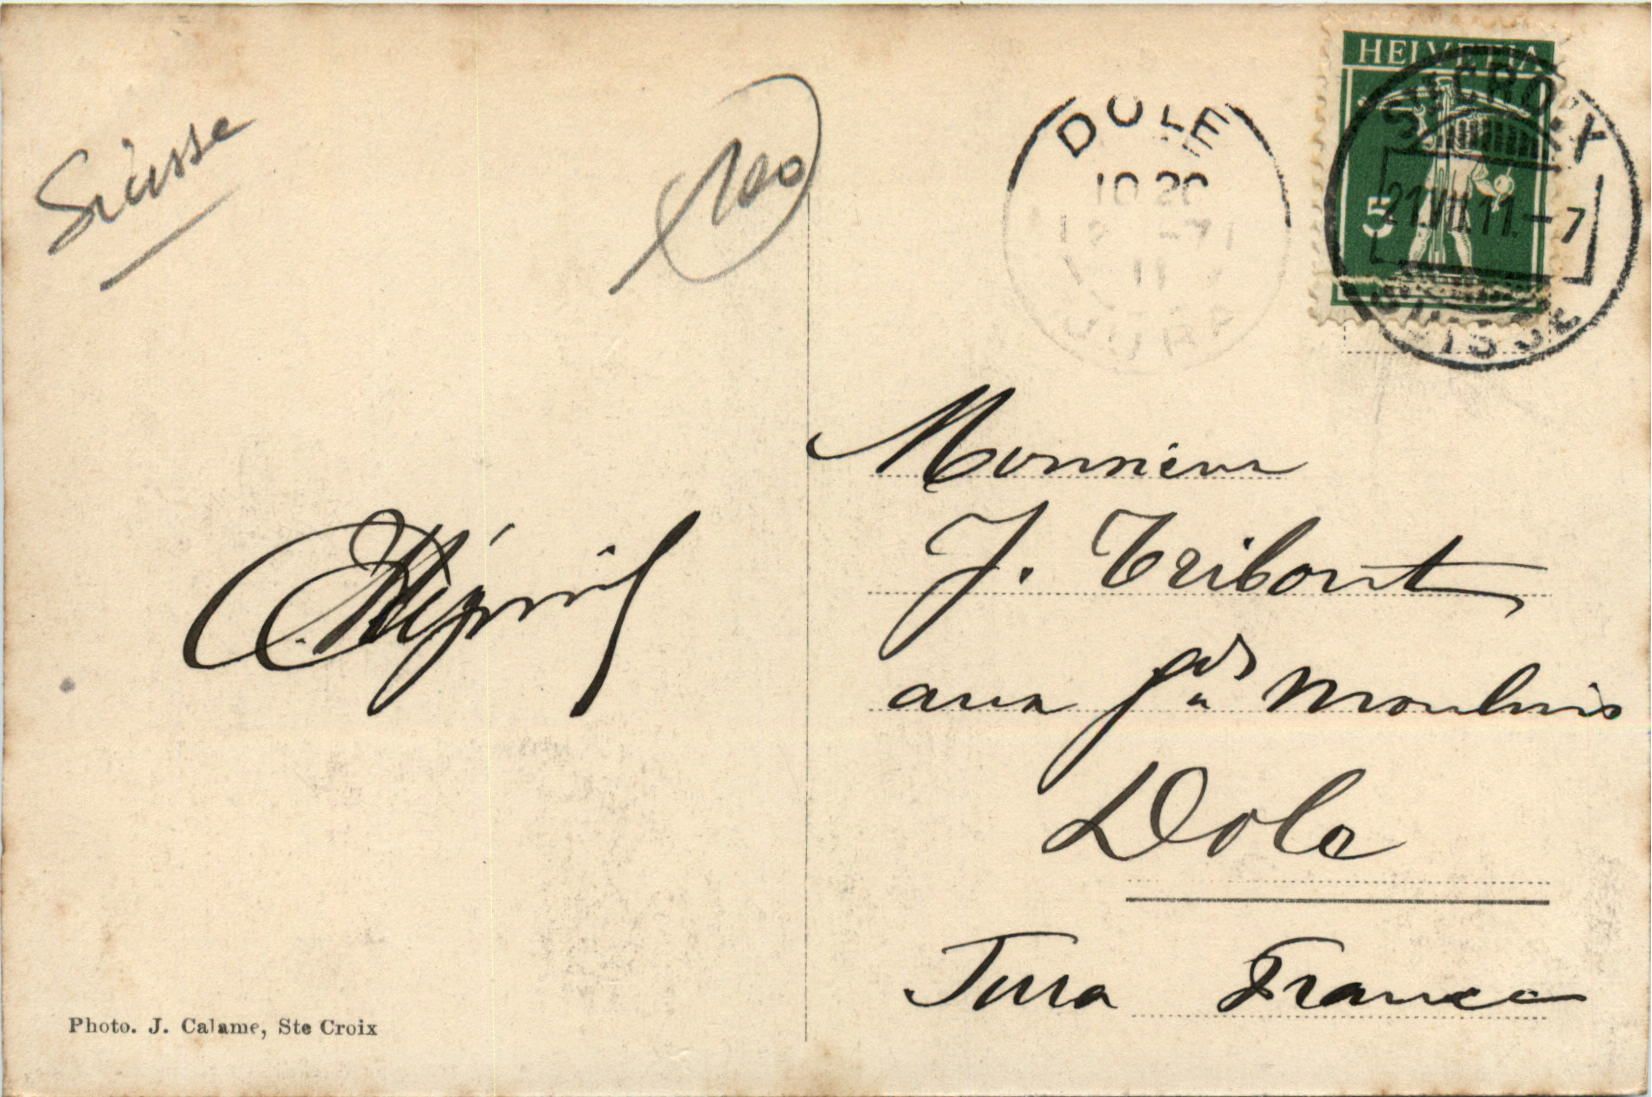 Suisse
100
DOLE
10 20
HELVETIA
5
STE CROIX
21.VII.11.-7
SUISSE
Monsieur
J. Tribout
aux Gds Moulins
Dole
Jura France
Photo. J. Calame, Ste Croix